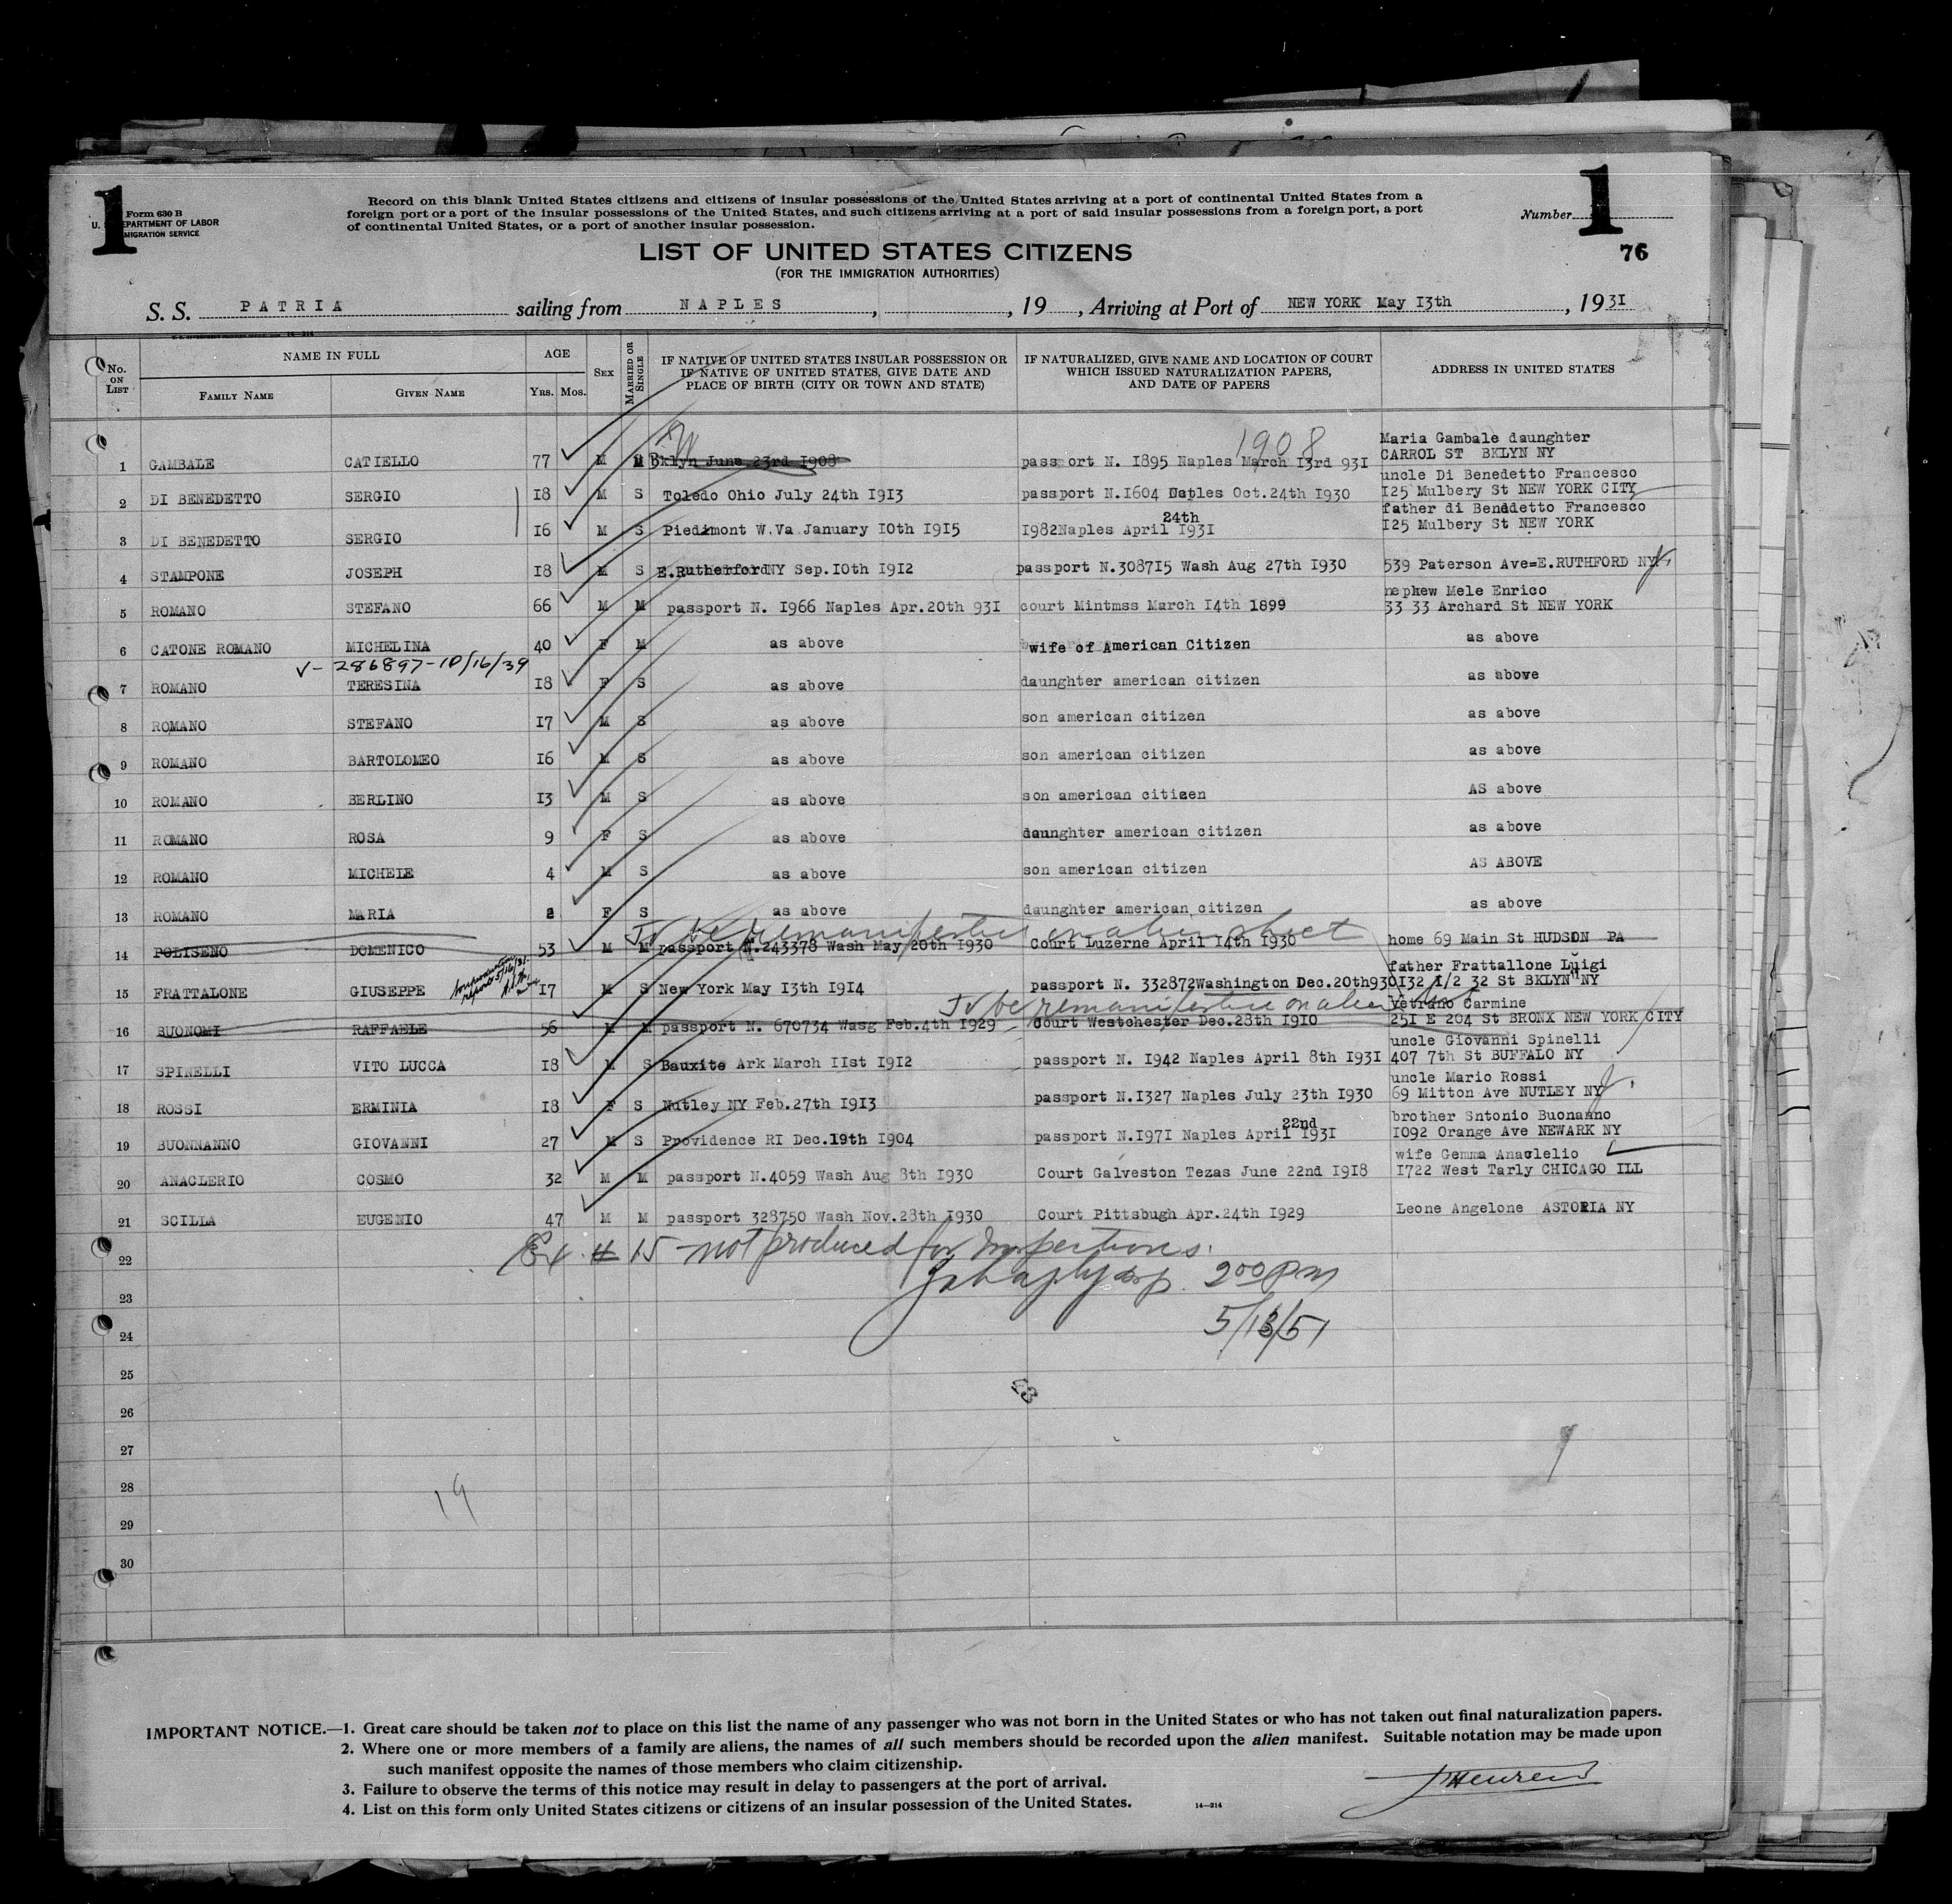 1
Form 630 B
U. S. DEPARTMENT OF LABOR
IMMIGRATION SERVICE
Record on this blank United States citizens and citizens of insular possessions of the United States arriving at a port of continental United States from a
foreign port or a port of the insular possessions of the United States, and such citizens arriving at a port of said insular possessions from a foreign port, a port
of continental United States, or a port of another insular possession.
Number 1
76
LIST OF UNITED STATES CITIZENS
(FOR THE IMMIGRATION AUTHORITIES)
S. S. PATRIA sailing from NAPLES , , 19 , Arriving at Port of NEW YORK May I3th , 1931
No. ON LIST
NAME IN FULL
FAMILY NAME
GIVEN NAME
AGE
YRS. MOS.
SEX
MARRIED OR SINGLE
IF NATIVE OF UNITED STATES INSULAR POSSESSION OR
IF NATIVE OF UNITED STATES, GIVE DATE AND
PLACE OF BIRTH (CITY OR TOWN AND STATE)
IF NATURALIZED, GIVE NAME AND LOCATION OF COURT
WHICH ISSUED NATURALIZATION PAPERS,
AND DATE OF PAPERS
ADDRESS IN UNITED STATES
1908
Maria Gambale daunghter
1 GAMBALE CATIELLO 77 M M Bklyn June 23rd I908 passport N. I895 Naples March I3rd 93I CARROL ST BKLYN NY
uncle Di Benedetto Francesco
2 DI BENEDETTO SERGIO I8 M S Toledo Ohio July 24th I9I3 passport N.I604 Naples Oct.24th I930 I25 Mulbery St NEW YORK CITY
father di Benedetto Francesco
24th
3 DI BENEDETTO SERGIO I6 M S Piedimont W.Va January I0th I9I5 I982Naples April I93I I25 Mulbery St NEW YORK
4 STAMPONE JOSEPH I8 M S E.Rutherford NY Sep.I0th I9I2 passport N.3087I5 Wash Aug 27th I930 539 Paterson Ave=E.RUTHFORD NY
nephew Mele Enrico
5 ROMANO STEFANO 66 M M passport N. I966 Naples Apr.20th 93I court Mintmss March I4th 1899 33 33 Archard St NEW YORK
6 CATONE ROMANO MICHELINA 40 F M as above wife of American Citizen as above
V- 286897-10/16/39
7 ROMANO TERESINA I8 F S as above daunghter american citizen as above
8 ROMANO STEFANO I7 M S as above son american citizen as above
9 ROMANO BARTOLOMEO I6 M S as above son american citizen as above
10 ROMANO BERLINO I3 M S as above son american citizen AS above
11 ROMANO ROSA 9 F S as above daunghter american citizen as above
12 ROMANO MICHELE 4 M S as above son american citizen AS ABOVE
13 ROMANO MARIA 2 F S as above daunghter american citizen as above
To be remanifested on alien sheet
14 POLISENO DOMENICO 53 M M passport N.243378 Wash May 20th I930 Court Luzerne April I4th I930 home 69 Main St HUDSON PA
father Frattallone Luigi
15 FRATTALONE GIUSEPPE I7 M S New York May I3th I9I4 passport N. 332872Washington Dec.20th930 I32 I/2 32 St BKLYN NY
To be remanifested on alien
Vetrano Carmine
16 BUONOMI RAFFAELE 56 M M passport N. 670734 Wasg Feb.4th I929 Court Westchester Dec.28th I9I0 25I E 204 St BRONX NEW YORK CITY
uncle Giovanni Spinelli
17 SPINELLI VITO LUCCA I8 M S Bauxite Ark March IIst I9I2 passport N. I942 Naples April 8th I93I 407 7th St BUFFALO NY
uncle Mario Rossi
18 ROSSI ERMINIA I8 F S Nutley NY Feb.27th I9I3 passport N.I327 Naples July 23th I930 69 Mitton Ave NUTLEY NY
brother Sntonio Buonanno
22nd
19 BUONNANNO GIOVANNI 27 M S Providence RI Dec.I9th I904 passport N.I97I Naples April I93I I092 Orange Ave NEWARK NY
wife Gemma Anaclelio
20 ANACLERIO COSMO 32 M M passport N.4059 Wash Aug 8th I930 Court Galveston Tezas June 22nd I9I8 I722 West Tarly CHICAGO ILL
21 SCILLA EUGENIO 47 M M passport 328750 Wash Nov.28th I930 Court Pittsbugh Apr.24th I929 Leone Angelone ASTORIA NY
# 15 - not produced for Inspections.
22
2 00 PM
23
5/13/31
24
25
26
27
28
19
29
30
IMPORTANT NOTICE.—1. Great care should be taken not to place on this list the name of any passenger who was not born in the United States or who has not taken out final naturalization papers.
2. Where one or more members of a family are aliens, the names of all such members should be recorded upon the alien manifest. Suitable notation may be made upon
such manifest opposite the names of those members who claim citizenship.
3. Failure to observe the terms of this notice may result in delay to passengers at the port of arrival.
4. List on this form only United States citizens or citizens of an insular possession of the United States.
14—214